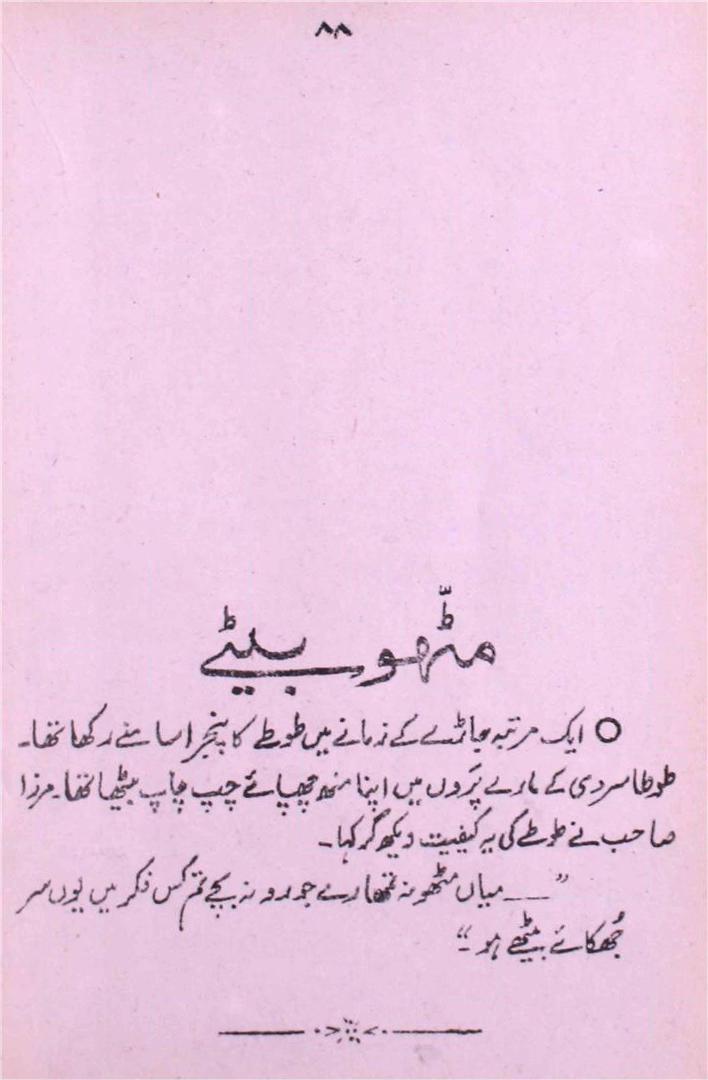 ۸۸
مٹّھو بیٹے
○ ایک مرتبہ جاڑے کے زمانے میں طوطے کا پنجرا سامنے رکھا تھا۔
طوطا سردی کے مارے پَروں میں اپنا منھ چھپائے چپ چاپ بیٹھا تھا۔ مرزا
صاحب نے طوطے کی یہ کیفیت دیکھ کر کہا۔
”___ میاں مٹھو نہ تمھارے جورو نہ بچے تم کس فکر میں یوں سر
جُھکائے بیٹھے ہو۔“